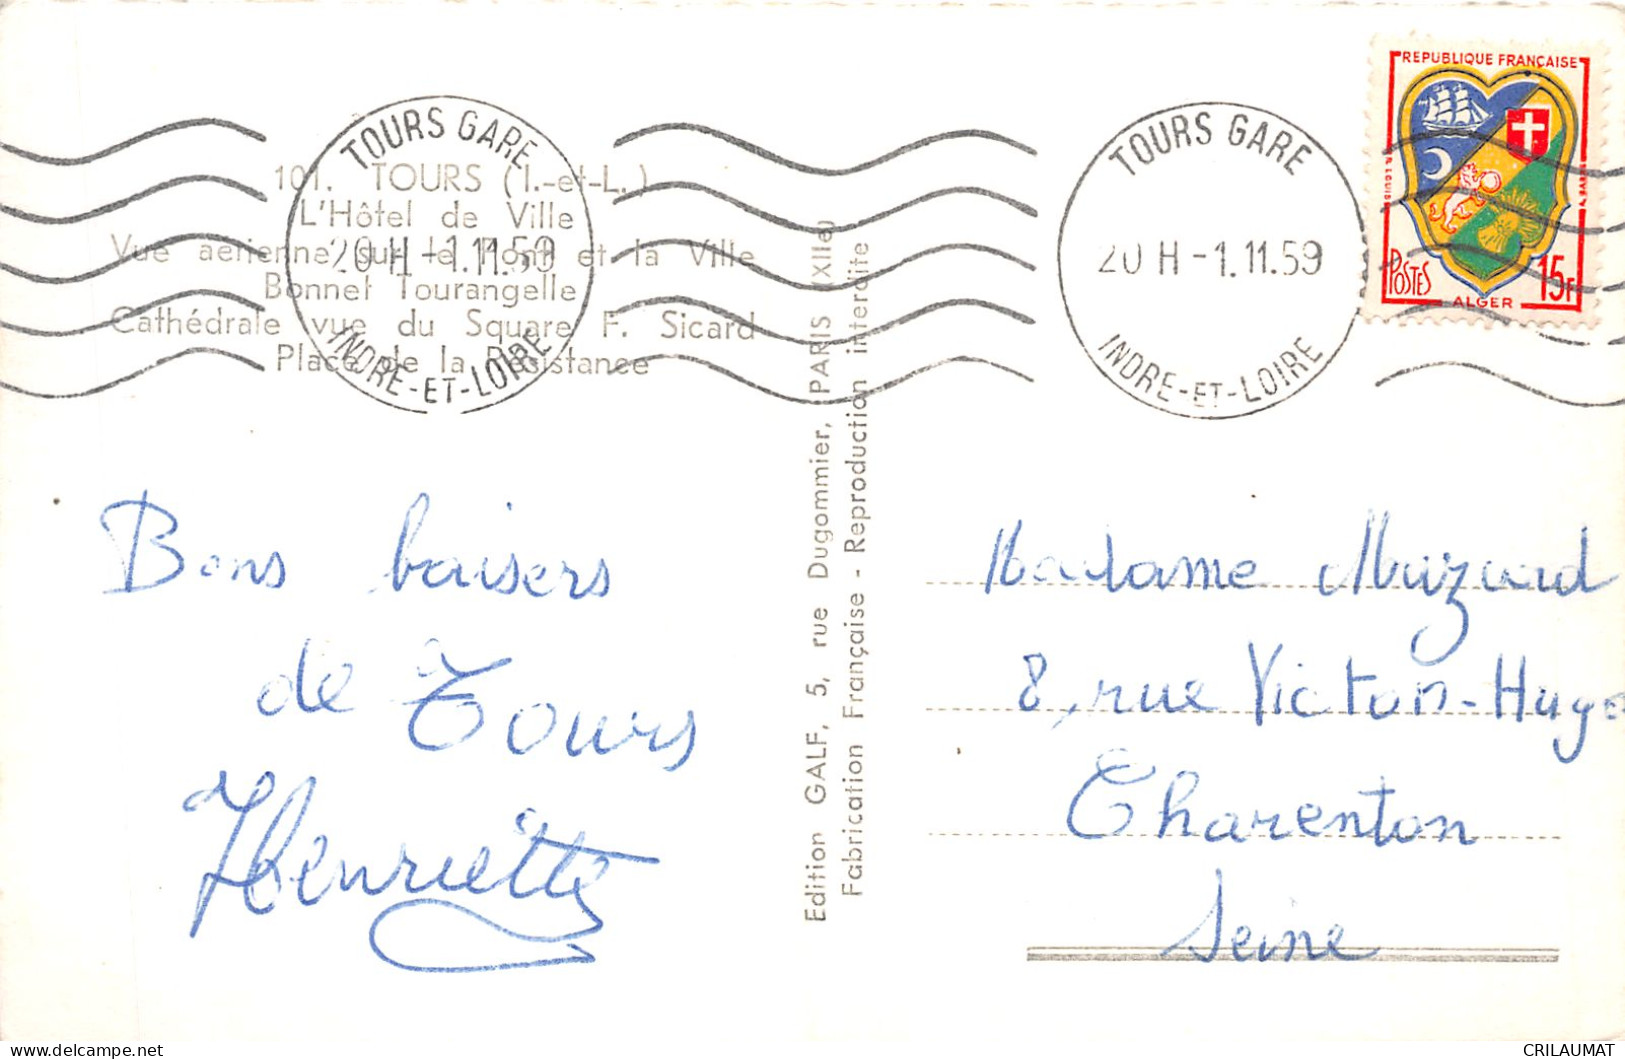 TOURS GARE
20 H - 1.11.59
INDRE-ET-LOIRE
101. TOURS (I.-et-L.)
L'Hôtel de Ville
Vue aérienne sur le Pont et la Ville
Bonnet Tourangelle
Cathédrale vue du Square F. Sicard
Place de la Résistance
Bons baisers
de Tours
Henriette
Edition GALF, 5, rue Dugommier, PARIS (XIIe)
Fabrication Française - Reproduction interdite
TOURS GARE
20 H - 1.11.59
INDRE-ET-LOIRE
REPUBLIQUE FRANÇAISE
POSTES
15F
ALGER
Madame Muzard
8, rue Victor-Hugo
Charenton
Seine
delcampe.net
CRILAUMAT